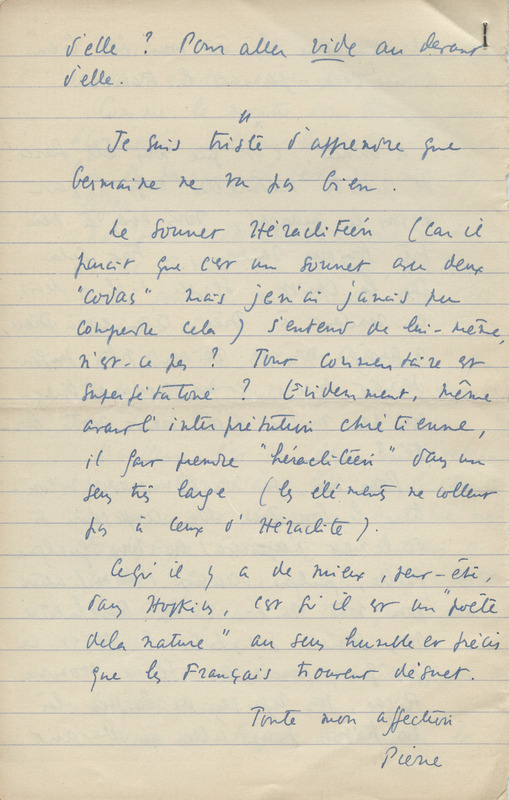 d'elle ? Pour aller vide au devant
d'elle.
"
Je suis triste d'apprendre que
Germaine ne va pas bien.
Le Sonnet Héraclitéen (car il
paraît que c'est un sonnet avec deux
"codas" mais je n'ai jamais pu
comprendre cela) s'entend de lui-même,
n'est-ce pas ? Tout commentaire est
superfétatoire ? Evidemment, même
avant l'interprétation chrétienne,
il faut prendre "héraclitéen" dans un
sens très large (les éléments ne collent
pas à ceux d'Héraclite).
Ce qu'il y a de mieux, peut-être,
dans Hopkins, c'est qu'il est un "poète
de la nature" au sens humble et précis
que les Français trouvent désuet.
Toute mon affection
Pierre